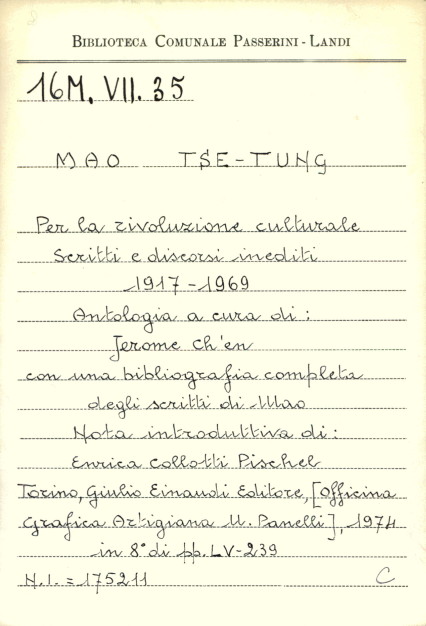 BIBLIOTECA COMUNALE PASSERINI - LANDI
16M. VII. 35
MAO TSE-TUNG
Per la rivoluzione culturale
Scritti e discorsi inediti
1917-1969
Antologia a cura di:
Jerome Ch'en
con una bibliografia completa
degli scritti di Mao
Nota introduttiva di:
Enrica Collotti Pischel
Torino, Giulio Einaudi Editore, [Officina
Grafica Artigiana U. Panelli], 1974
in 8° di pp. LV-239
N.I. = 175211 C